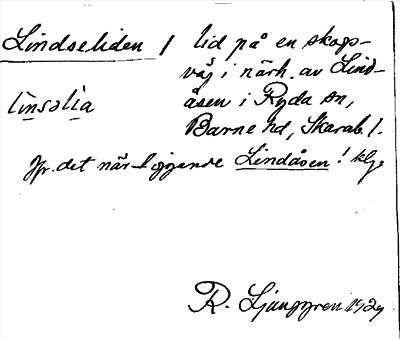 Lindseliden / lid på en skogs-
väg i närh. av Lind-
linsəlia åsen i Ryda sn,
Barne hd, Skarab. l.
Jfr. det när-liggande Lindåsen!
R. Ljunggren 1929